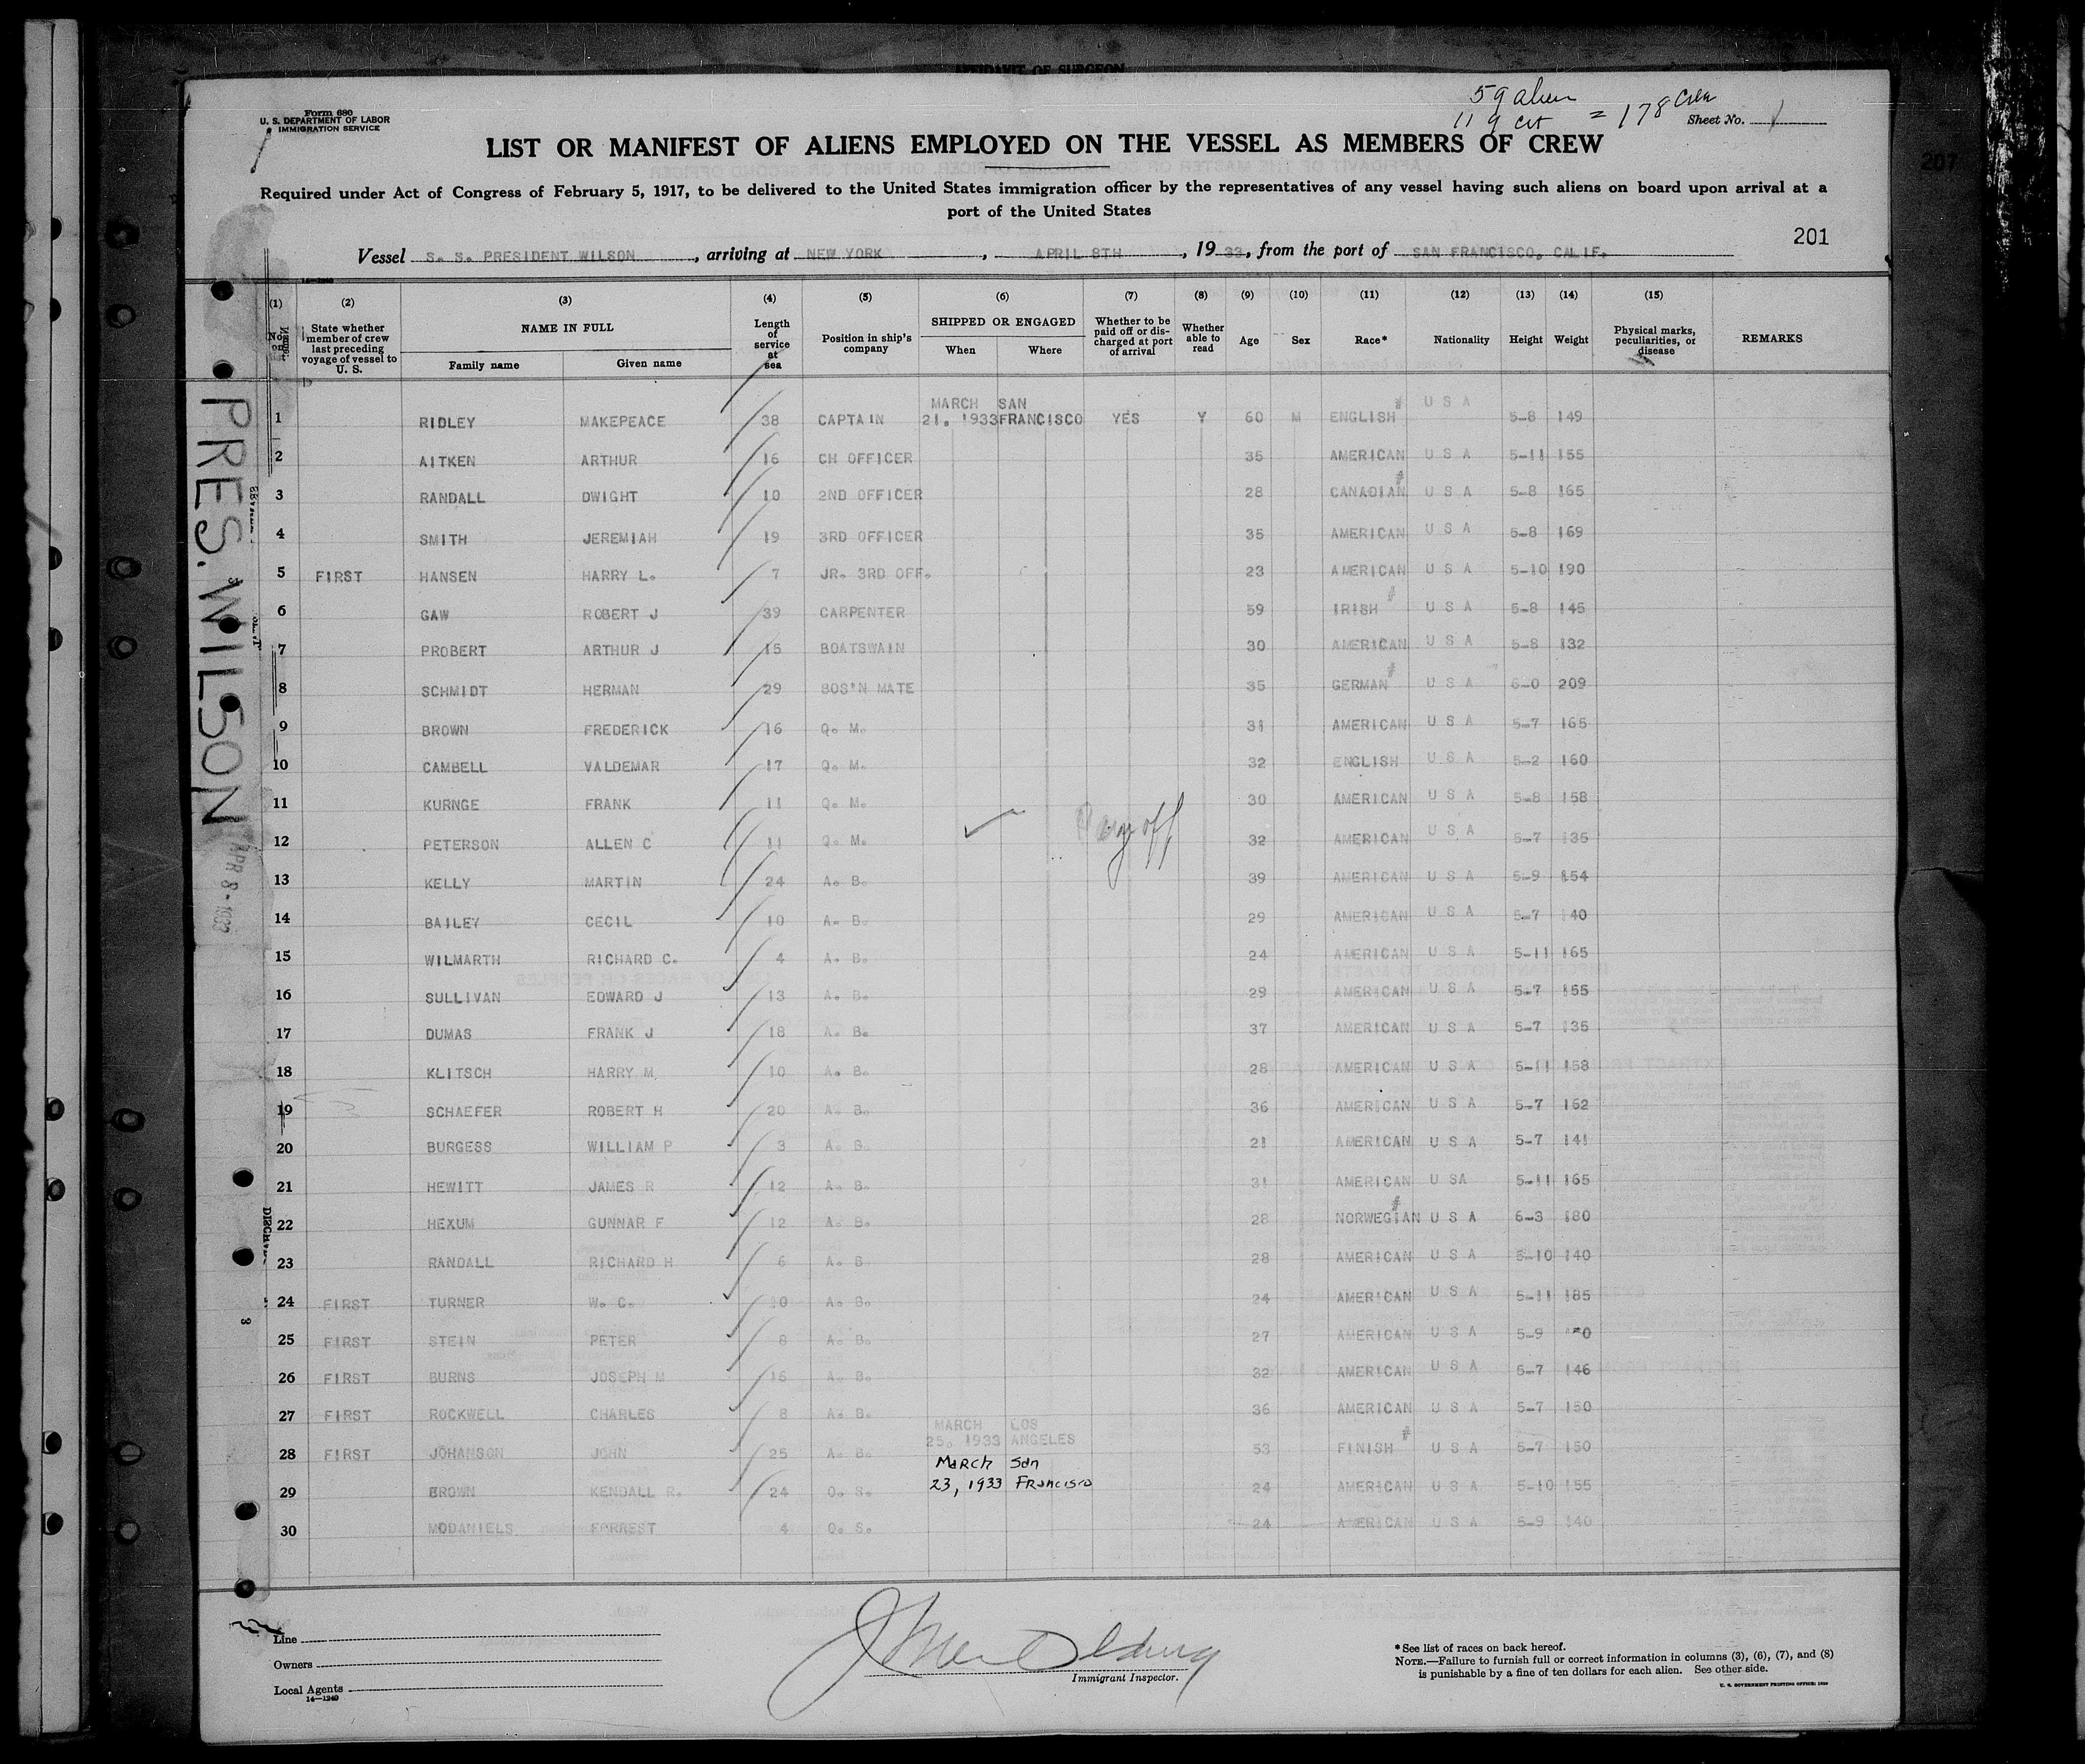 AFFIDAVIT OF SURGEON
59 alien
119 cit = 178 Crew
Form 680
U. S. DEPARTMENT OF LABOR
IMMIGRATION SERVICE
Sheet No. 1
LIST OR MANIFEST OF ALIENS EMPLOYED ON THE VESSEL AS MEMBERS OF CREW
Required under Act of Congress of February 5, 1917, to be delivered to the United States immigration officer by the representatives of any vessel having such aliens on board upon arrival at a
port of the United States
207
201
Vessel S. S. PRESIDENT WILSON, arriving at NEW YORK, APRIL 8TH, 1933, from the port of SAN FRANCISCO, CALIF.
(1) (2) (3) (4) (5) (6) (7) (8) (9) (10) (11) (12) (13) (14) (15)
No. on State whether member of crew last preceding voyage of vessel to U. S. NAME IN FULL Family name Given name Length of service at sea Position in ship's company SHIPPED OR ENGAGED When Where Whether to be paid off or discharged at port of arrival Whether able to read Age Sex Race* Nationality Height Weight Physical marks, peculiarities, or disease REMARKS
PRES. WILSON
APR 8 - 1933
1 RIDLEY MAKEPEACE 38 CAPTAIN MARCH 21, 1933 SAN FRANCISCO YES Y 60 M ENGLISH # U S A 5-8 149
2 AITKEN ARTHUR 16 CH OFFICER 35 AMERICAN U S A 5-11 155
3 RANDALL DWIGHT 10 2ND OFFICER 28 CANADIAN # U S A 5-8 165
4 SMITH JEREMIAH 19 3RD OFFICER 35 AMERICAN U S A 5-8 169
5 FIRST HANSEN HARRY L. 7 JR. 3RD OFF. 23 AMERICAN U S A 5-10 190
6 GAW ROBERT J 39 CARPENTER 59 IRISH # U S A 5-8 145
7 PROBERT ARTHUR J 15 BOATSWAIN 30 AMERICAN U S A 5-8 132
8 SCHMIDT HERMAN 29 BOS'N MATE 35 GERMAN # U S A 6-0 209
9 BROWN FREDERICK 16 Q. M. 31 AMERICAN U S A 5-7 165
10 CAMBELL VALDEMAR 17 Q. M. 32 ENGLISH U S A 5-2 160
11 KURNGE FRANK 11 Q. M. 30 AMERICAN U S A 5-8 158
12 PETERSON ALLEN C 11 Q. M. Pay off 32 AMERICAN U S A 5-7 135
13 KELLY MARTIN 24 A. B. 39 AMERICAN U S A 5-9 154
14 BAILEY CECIL 10 A. B. 29 AMERICAN U S A 5-7 140
15 WILMARTH RICHARD C. 4 A. B. 24 AMERICAN U S A 5-11 165
16 SULLIVAN EDWARD J 13 A. B. 29 AMERICAN U S A 5-7 155
17 DUMAS FRANK J 18 A. B. 37 AMERICAN U S A 5-7 135
18 KLITSCH HARRY M 10 A. B. 28 AMERICAN U S A 5-11 158
19 SCHAEFER ROBERT H 20 A. B. 36 AMERICAN U S A 5-7 162
20 BURGESS WILLIAM P 3 A. B. 21 AMERICAN U S A 5-7 141
21 HEWITT JAMES R 12 A. B. 31 AMERICAN U SA 5-11 165
22 HEXUM GUNNAR F 12 A. B. 28 NORWEGIAN # U S A 6-3 180
23 RANDALL RICHARD H 6 A. B 28 AMERICAN U S A 5-10 140
24 FIRST TURNER W. C. 10 A. B. 24 AMERICAN U S A 5-11 185
25 FIRST STEIN PETER 8 A. B. 27 AMERICAN U S A 5-9
26 FIRST BURNS JOSEPH M 16 A. B. 32 AMERICAN U S A 5-7 146
27 FIRST ROCKWELL CHARLES 8 A. B. 36 AMERICAN U S A 5-7 150
28 FIRST JOHANSON JOHN 25 A. B. MARCH 25, 1933 LOS ANGELES 53 FINISH # U S A 5-7 150
29 BROWN KENDALL R. 24 O. S. March 23, 1933 San Francisco 24 AMERICAN U S A 5-10 155
30 MCDANIELS FORREST 4 O. S. 24 AMERICAN U S A 5-9 140
Line
Owners
Local Agents
14-1240
Immigrant Inspector.
*See list of races on back hereof.
NOTE.—Failure to furnish full or correct information in columns (3), (6), (7), and (8)
is punishable by a fine of ten dollars for each alien. See other side.
U. S. GOVERNMENT PRINTING OFFICE: 1929